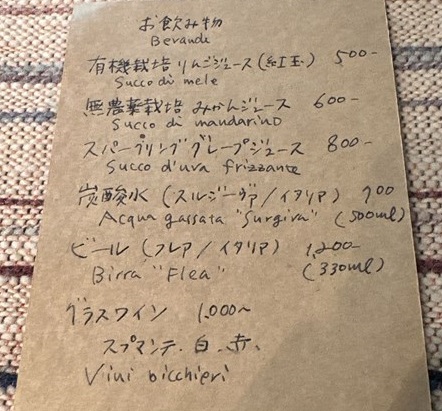 お飲み物
Bevande
有機栽培 りんごジュース(紅玉) 500-
Succo di mele
無農薬栽培 みかんジュース 600-
Succo di mandarino
スパークリンググレープジュース 800-
Succo d'uva frizzante
炭酸水 (スルジーヴァ/イタリア) 900
Acqua gassata "Surgiva" (500ml)
ビール (フレア/イタリア) 1,200-
Birra "Flea" (330ml)
グラスワイン 1,000~
スプマンテ. 白. 赤.
Vini bicchieri